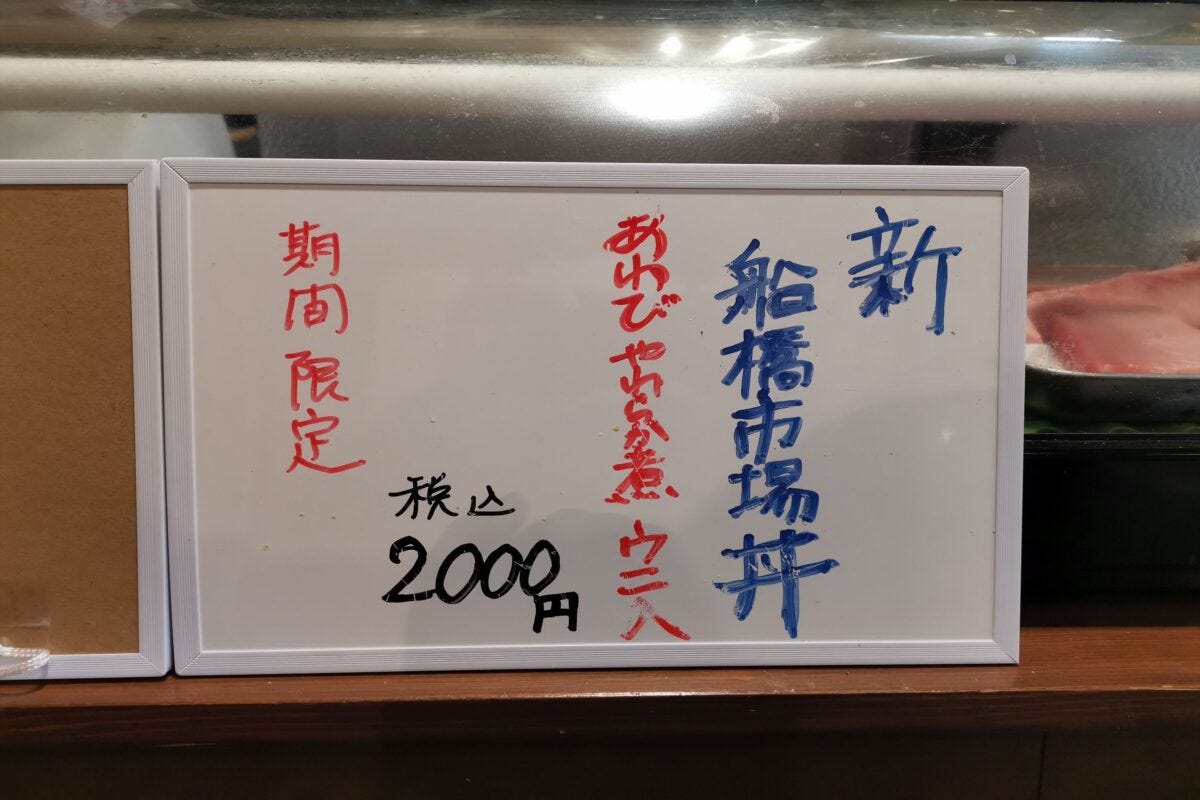 新
船橋市場丼
あわびやわらか煮 ウニ入
税込
2000円
期間限定